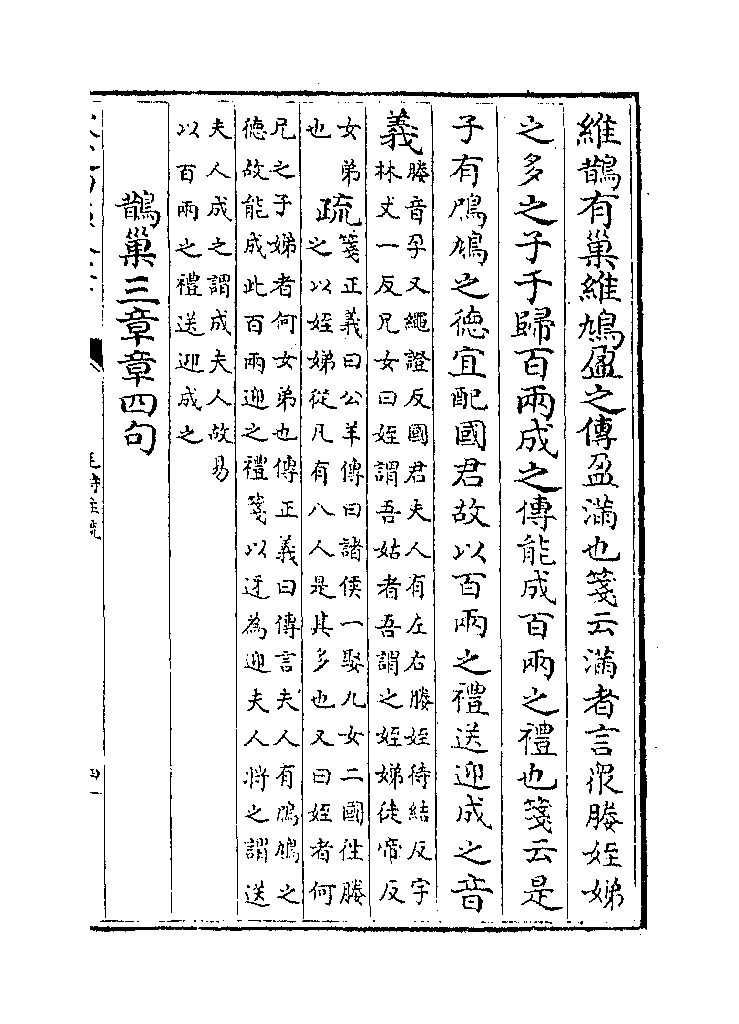 維鵲有巢維鳩盈之傳盈滿也箋云滿者言衆媵姪娣
之多之子于歸百兩成之傳能成百兩之禮也箋云是
子有鳲鳩之德宜配國君故以百兩之禮送迎成之音
義媵音孕又繩證反國君夫人有左右媵姪待結反字
林丈一反兄女曰姪謂吾姑者吾謂之姪娣徒帝反
女弟
也
疏箋正義曰公羊傳曰諸侯一娶九女二國徃媵
之以姪娣從凡有八人是其多也又曰姪者何
兄之子娣者何女弟也傳正義曰傳言夫人有鳲鳩之
德故能成此百兩迎之禮箋以迓為迎夫人將之謂送
夫人成之謂成夫人故易
以百兩之禮送迎成之
鵲巢三章章四句
毛詩注疏